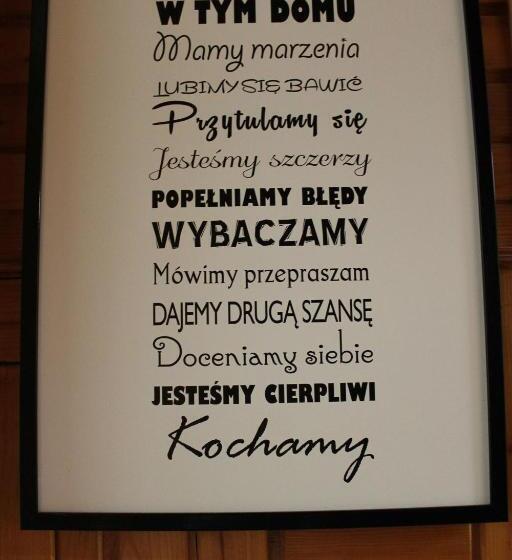 W TYM DOMU
Mamy marzenia
LUBIMY SIĘ BAWIĆ
Przytulamy się
Jesteśmy szczerzy
POPEŁNIAMY BŁĘDY
WYBACZAMY
Mówimy przepraszam
DAJEMY DRUGĄ SZANSĘ
Doceniamy siebie
JESTEŚMY CIERPLIWI
Kochamy